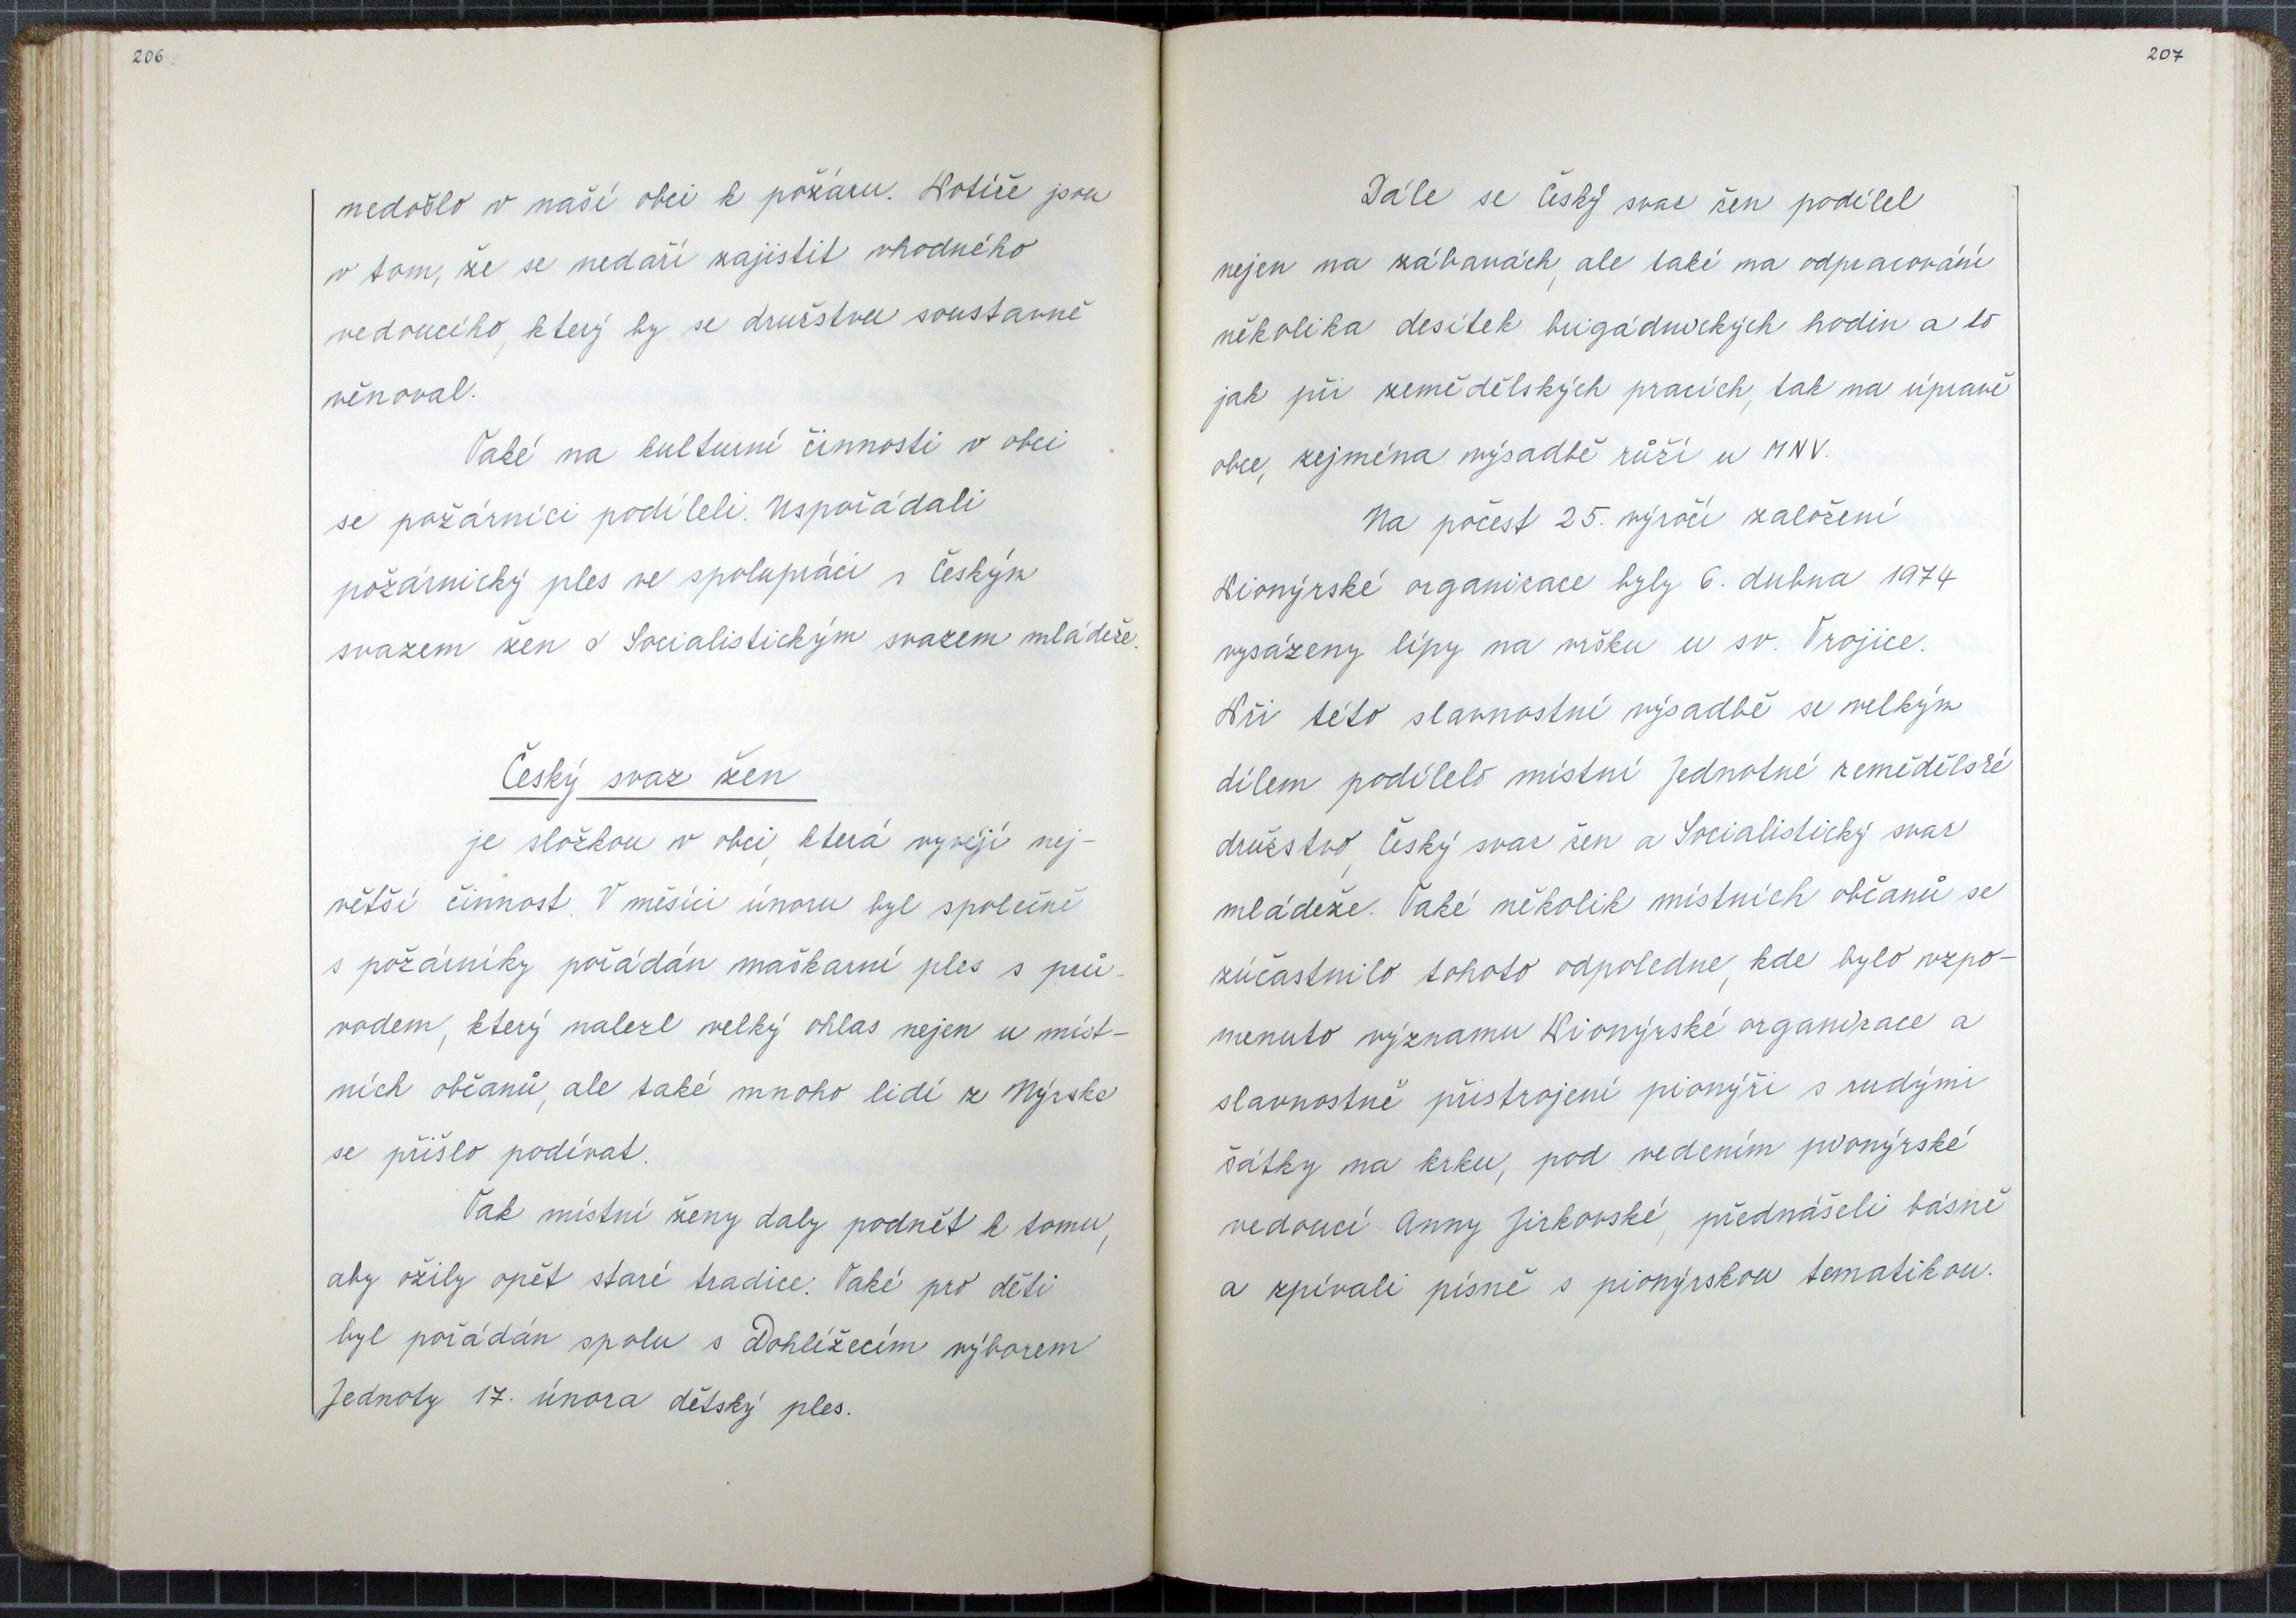 206
nedošlo v naší obci k požáru. Potíže jsou
v tom, že se nedaří zajistit vhodného
vedoucího, který by se družstvu soustavně
věnoval.
Také na kulturní činnosti v obci
se požárníci podíleli. Uspořádali
požárnický ples ve spolupráci s Českým
svazem žen a Socialistickým svazem mládeže.
Český svaz žen
je složkou v obci, která vyvíjí nej-
větší činnost. V měsíci únoru byl společně
s požárníky pořádán maškarní ples s prů-
vodem, který nalezl velký ohlas nejen u míst-
ních občanů, ale také mnoho lidí z Nýrska
se přišlo podívat.
Tak místní ženy daly podnět k tomu,
aby ožily opět staré tradice. Také pro děti
byl pořádán spolu s Dohlížecím výborem
Jednoty 17. února dětský ples.
207
Dále se Český svaz žen podílel
nejen na zábavách, ale také na odpracování
několika desítek brigádnických hodin a to
jak při zemědělských pracích, tak na úpravě
obce, zejména výsadbě růží u MNV.
Na počest 25. výročí založení
Pionýrské organizace byly 6. dubna 1974
vysázeny lípy na vršku u sv. Trojice.
Při této slavnostní výsadbě se velkým
dílem podílelo místní Jednotné zemědělské
družstvo, Český svaz žen a Socialistický svaz
mládeže. Také několik místních občanů se
zúčastnilo tohoto odpoledne, kde bylo vzpo-
menuto významu Pionýrské organizace a
slavnostně přistrojení pionýři s rudými
šátky na krku, pod vedením pionýrské
vedoucí Anny Jirkovské, přednášeli básně
a zpívali písně s pionýrskou tematikou.